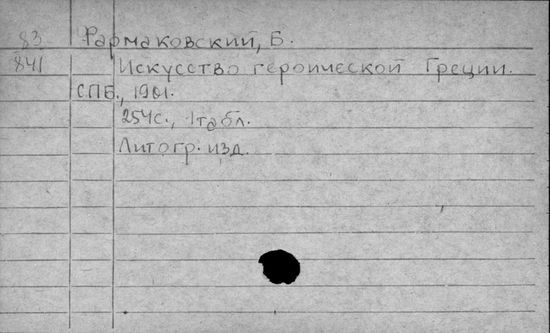 83 Фармаковский, Б.
841 Искусство героической Греции.
СПБ., 1901.
254с., 1табл.
Литогр. изд.